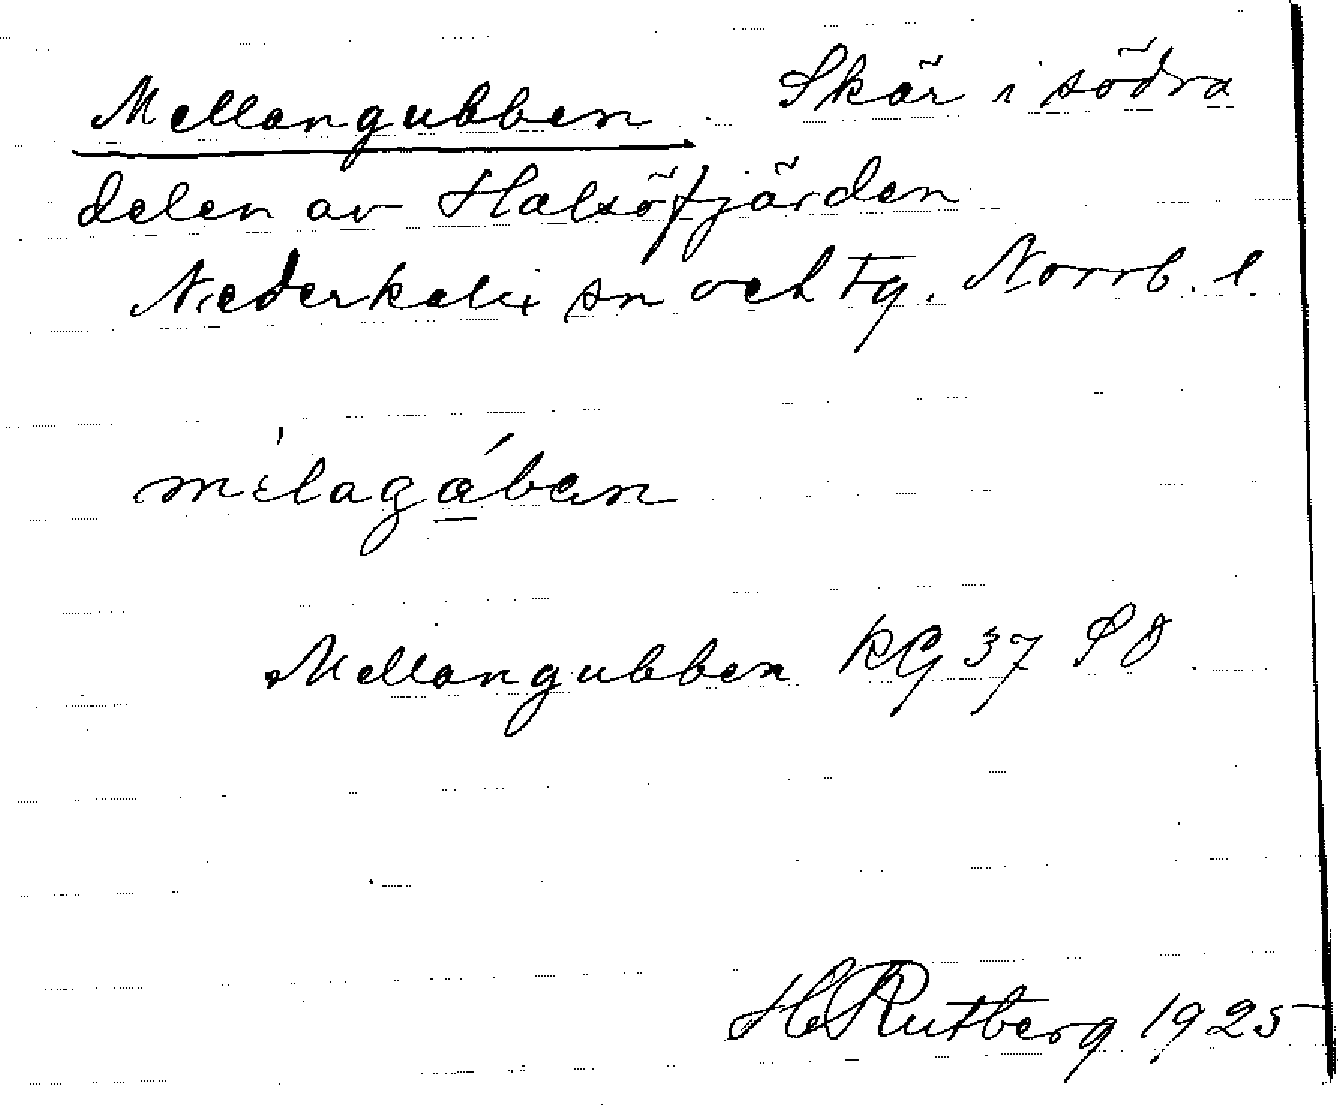 Mellangubben. Skär i södra
delen av Halsöfjärden
Nederkalix sn och tg. Norrb. l.
mèlagában
Mellangubben KG 37 SO
H Rutberg 1925